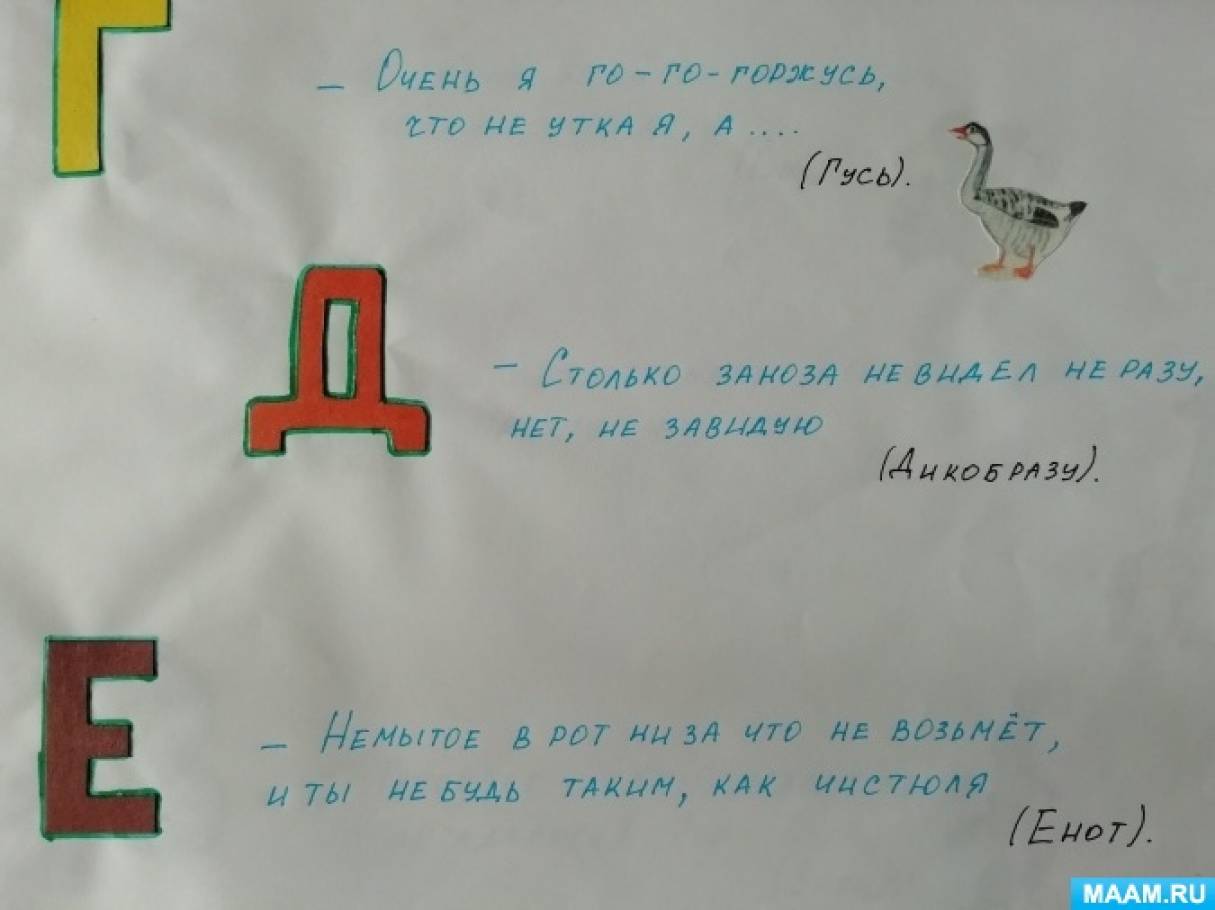 Г
– Очень я го-го-горжусь,
что не утка я, а ....
(Гусь).
Д
– Столько заноза не видел не разу,
нет, не завидую
(Дикобразу).
Е
– Немытое в рот ни за что не возьмёт,
и ты не будь таким, как чистюля
(Енот).
MAAM.RU